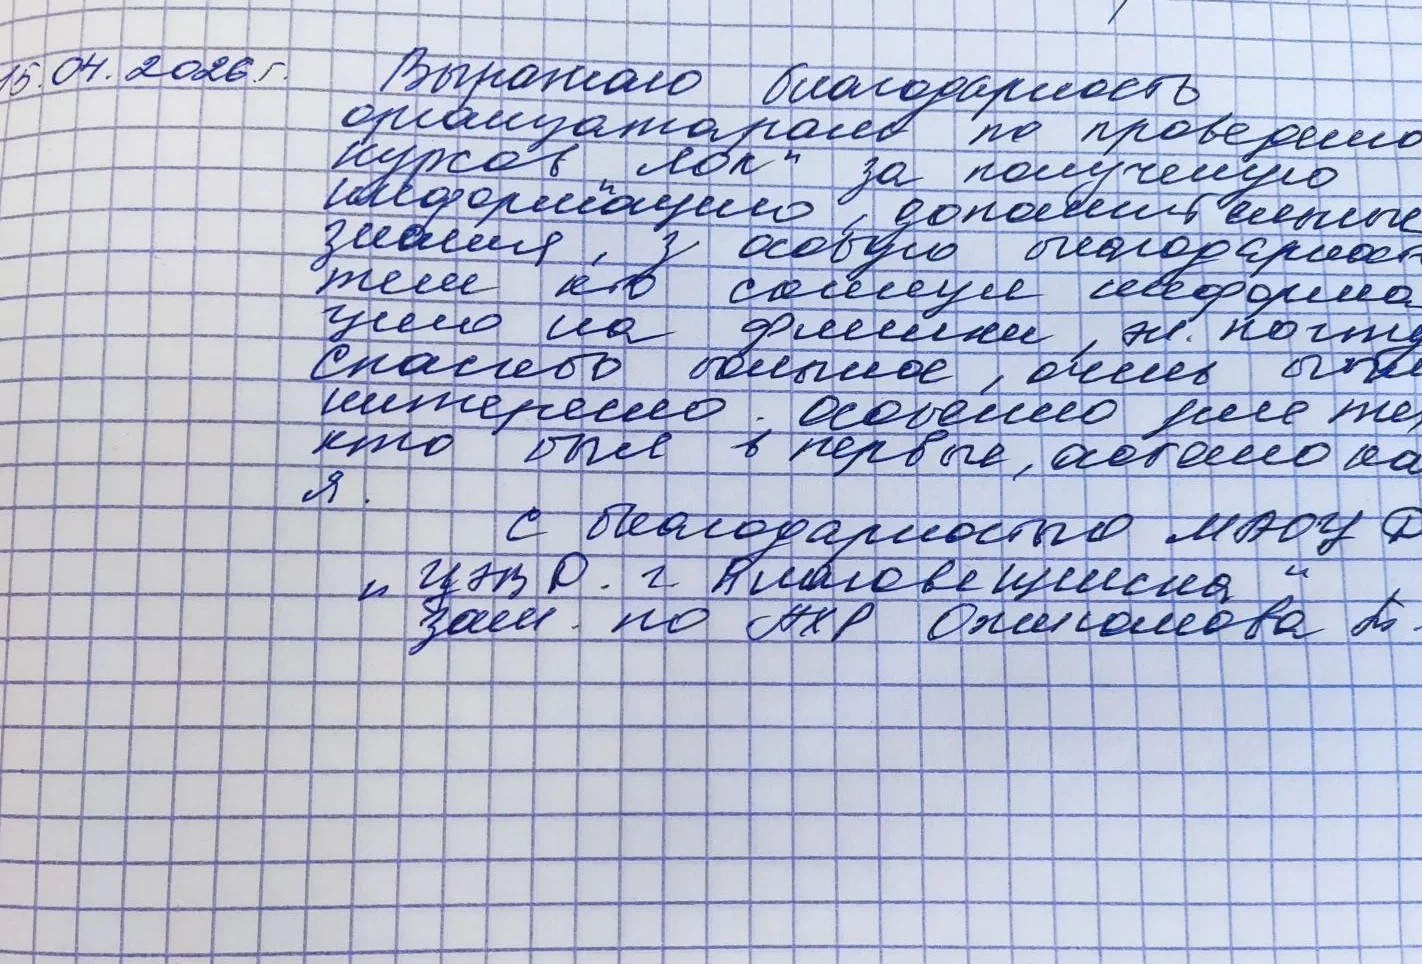 15.04.2026 г. Выражаю благодарность
организаторам по проведению
курсов за полученую
информацию, дополнительные
знания, особую благодарност
тем кто скинул информа
цию на флешки, эл. почту
Спасибо большое, очень было
интересно. Особенно для тех,
кто был в первые, особенно ка
я.
С благодарностью МАОУ Д
"ЦЭВД. г. Благовещенска"
Зам. по АХР